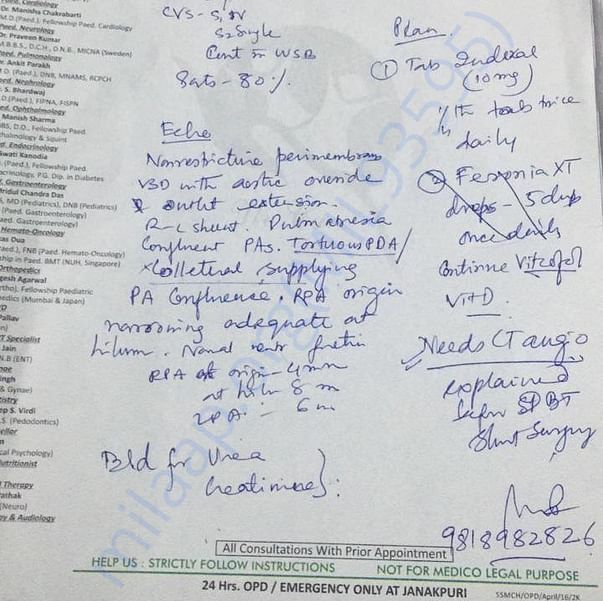 Cardiology
Dr. Manisha Chakrabarti
M.D.(Paed.), Fellowship Paed. Cardiology
Paed. Neurology
Dr. Praveen Kumar
M.B.B.S., D.C.H., D.N.B., MICNA (Sweden)
Paed. Pulmonology
Dr. Ankit Parakh
M.D. (Paed.), DNB, MNAMS, RCPCH
Paed. Nephrology
S. Bhardwaj
(Paed.), FIPNA, FISPN
Paed. Ophthalmology
Manish Sharma
MBBS, D.O., Fellowship Paed.
Ophthalmology & Squint
Endocrinology
Swati Kanodia
(Paed.), Fellowship Paed.
PG. Dip. in Diabetes
Gastroenterology
Chandra Das
MD (Pediatrics), DNB (Pediatrics)
(Paed. Gastroenterology)
Paed. Gastroenterology)
Hemato-Oncology
Dua
(Paed.), FNB (Paed. Hemato-Oncology)
in Paed. BMT (NUH, Singapore)
Orthopedics
Agarwal
(Ortho), Fellowship Paediatric
(Mumbai & Japan)
Pallav
Specialist
Jain
N.B (ENT)
Singh
& Gynae)
S. Virdi
(Pedodontics)
Psychology)
Nutritionist
Therapy
Pathak
(Neuro)
& Audiology
CVS - S1 N
S2 Single
Cont m USB
Sats - 80 %.
Echo
Nonrestrictive perimembran
VSD with aortic override
& outlet extension.
R-L shunt. Pulm atresia
Confluent PAs. Tortuous PDA/
Collateral supplying
PA Confluence. RPA origin
narrowing adequate at
hilum.
RPA at origin - 4 mm
at hilum 8 m
LPA - 6 m
Bld for Urea
Creatinine
Plan
① Tab Inderal
(10mg)
1/4 th tab twice
daily
② Feronia XT
drops - 5 drops
once daily
Continue Vitcofol
Vit D
Needs CT angio
explained
BT
Shunt Surgery
9818982826
milaap.org
All Consultations With Prior Appointment
HELP US : STRICTLY FOLLOW INSTRUCTIONS NOT FOR MEDICO LEGAL PURPOSE
24 Hrs. OPD / EMERGENCY ONLY AT JANAKPURI
SSMCH/OPD/April/16/2K